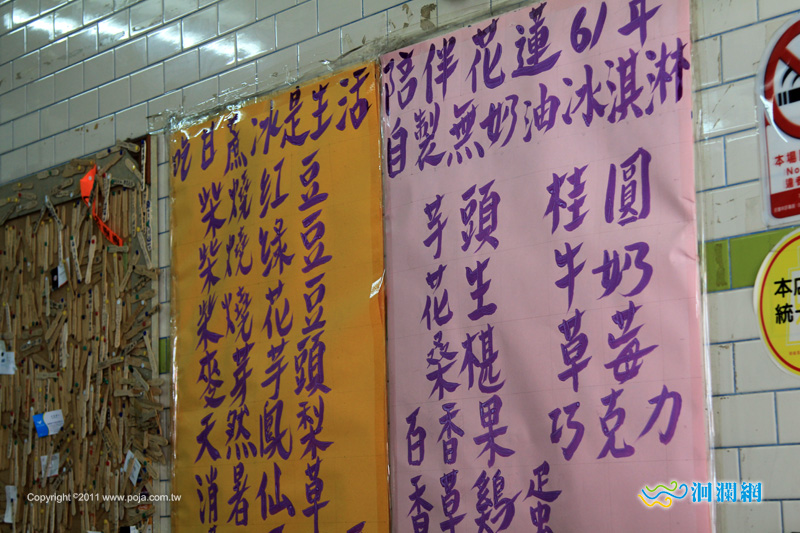 吃甘蔗冰是生活
柴燒紅豆
柴燒綠豆
柴燒花豆
麥芽芋頭
天然鳳梨
消暑仙草
陪伴花蓮61年
自製無奶油冰淇淋
芋頭 桂圓
花生 牛奶
桑椹 草莓
百香果 巧克力
香草雞
本店
統一
Copyright ©2011 www.poja.com.tw
洄瀾網